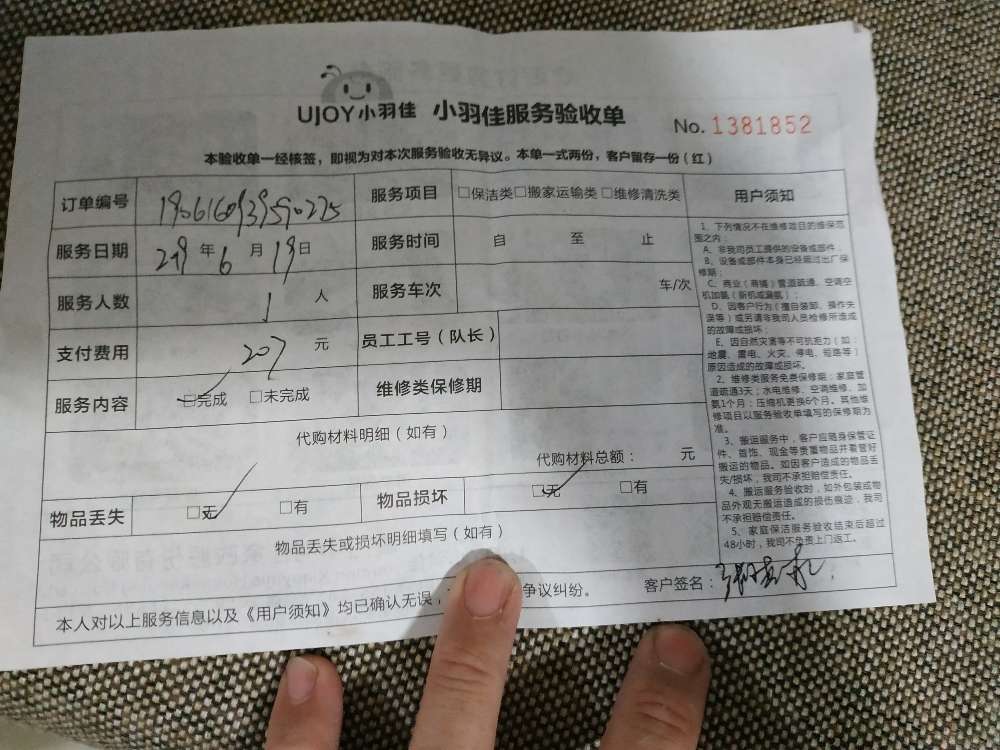 UJOY小羽佳 小羽佳服务验收单 No. 1381852
本验收单一经核签，即视为对本次服务验收无异议。本单一式两份，客户留存一份（红）
订单编号 服务项目 □保洁类□搬家运输类□维修清洗类
服务日期 年 6 月 19 日 服务时间 自 至 止
服务人数 1 人 服务车次 车/次
支付费用 207 元 员工工号（队长）
服务内容 □完成 □未完成 维修类保修期
代购材料明细（如有）
代购材料总额： 元
物品丢失 □无 □有 物品损坏 □无 □有
物品丢失或损坏明细填写（如有）
本人对以上服务信息以及《用户须知》均已确认无误， 争议纠纷。 客户签名：
用户须知
1、下列情况不在维修项目的维保范
围之内：
A、非我司员工提供的设备或部件；
B、设备或部件本身已经超过出厂保
修期；
C、商业（商铺）管道疏通、空调空
机加氨（新机或漏氨）；
D、因客户行为（擅自装卸、操作失
误等）或另请非我司人员检修所造成
的故障或损坏；
E、因自然灾害等不可抗拒力（如：
地震、雷电、火灾、停电、短路等）
原因造成的故障或损坏。
2、维修类服务免费保修期：家庭管
道疏通3天；水电维修、空调维修、加
氨1个月；压缩机更换6个月。其他维
修项目以服务验收单填写的保修期为
准。
3、搬运服务中，客户应随身保管证
件、首饰、现金等贵重物品并看管好
搬运的物品。如因客户造成的物品丢
失/损坏，我司不承担赔偿责任。
4、搬运服务验收时，如外包装或物
品外观无搬运造成的损伤痕迹，我司
不承担赔偿责任。
5、家庭保洁服务验收结束后超过
48小时，我司不负责上门返工。